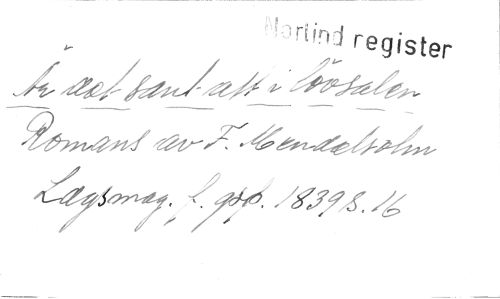 Nortind register
Är det sant att i lövsalen
Romans av F. Mendelsohn
Lægsmag. f. gpf. 1839 s. 16